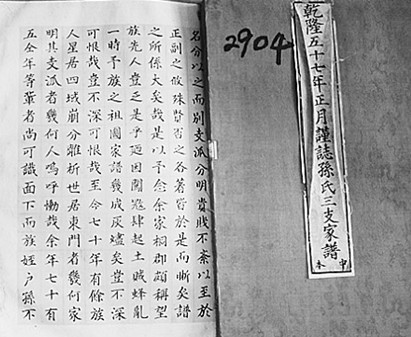 乾隆五十七年正月謹誌孫氏三支家譜
中本
2904
名分以之而別支派分明貴賤不紊以至於
正副之攸殊賢否之各著皆於是而晰矣譜
之所係大矣哉是以予念余家桐郡頗稱望
族先人豈乏是乎迺因闖寇肆起土賊蜂亂
一時予族之祖圖家譜幾成灰燼矣豈不深
可恨哉豈不深可恨哉至今七十年有餘族
人星居四域崩分離析世居東門者幾何家
明其支派者幾何人嗚呼慟哉余年七十有
五全年等輩者尚可識面下而族姪戶孫不